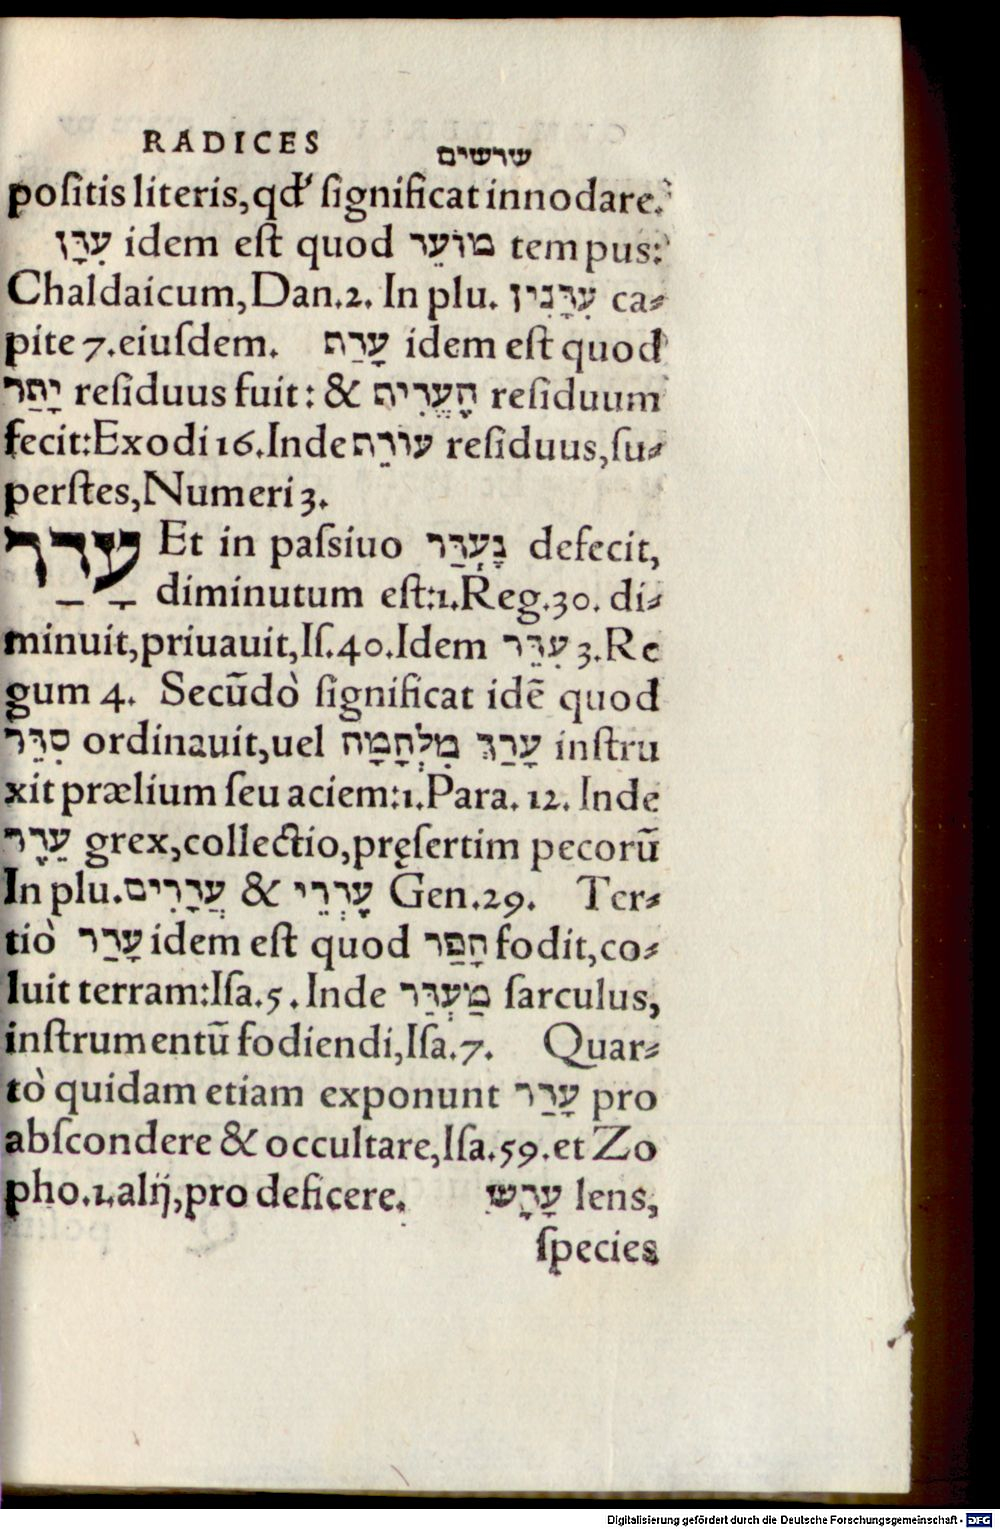 RADICES שרשים
poſitis literis,qđ ſignificat innodare.
עִדָּן idem eſt quod מוֹעֵד tempus:
Chaldaicum,Dan.2. In plu. עִדָּנִין ca⸗
pite 7.eiuſdem. עָדַף idem eſt quod
יָתַר reſiduus fuit: & הֶעֱדִיף reſiduum
fecit:Exodi 16.Inde עוֹדֵף reſiduus,ſu⸗
perſtes,Numeri 3.
עָדַר Et in paſsiuo נֶעְדַּר defecit,
diminutum eſt:1.Reg.30. di⸗
minuit,priuauit,Iſ.40.Idem עִדֵּר 3.Re
gum 4. Secūdò ſignificat idē quod
סִדֵּר ordinauit,uel עָרַךְ מִלְחָמָה inſtru
xit prælium ſeu aciem:1.Para. 12. Inde
עֵדֶר grex,collectio,pręſertim pecorū
In plu.עֲדָרִים & עֶדְרֵי Gen.29. Ter⸗
tiò עָדַר idem eſt quod חָפַר fodit,co⸗
luit terram:Iſa.5. Inde מַעְדֵּר ſarculus,
inſtrumentū fodiendi,Iſa.7. Quar⸗
tò quidam etiam exponunt עָדַר pro
abſcondere & occultare,Iſa.59.et Zo
pho.1.alij,pro deficere. עָדָשׁ lens,
ſpecies
Digitalisierung gefördert durch die Deutsche Forschungsgemeinschaft - DFG